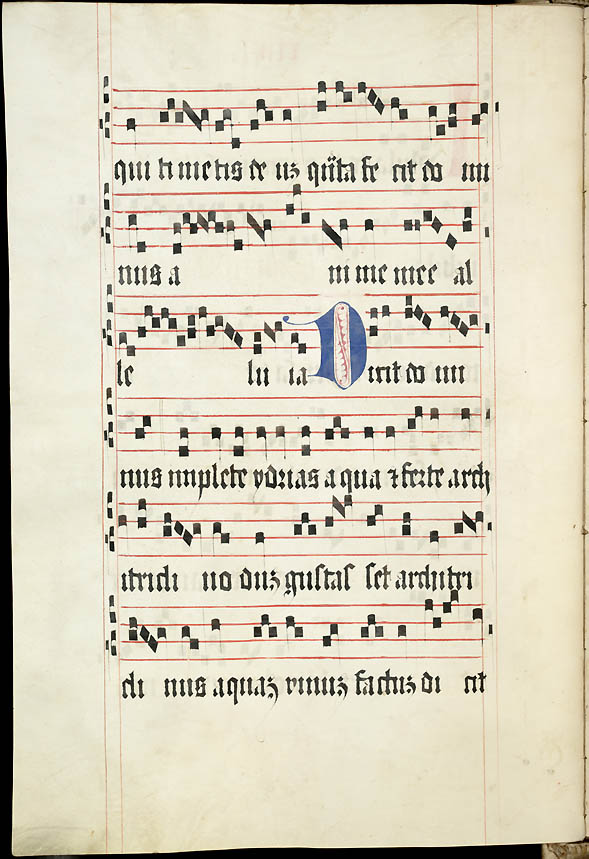 qui ti me tis de uʒ qͥta fe cit do mi
nus a ni me mee al
le lu ia Dixit do mi
nus implete ydrias a qua ⁊ ferte arch
itricli no duʒ gustas set architri
cli nus aquaʒ vinuʒ factuʒ di cit